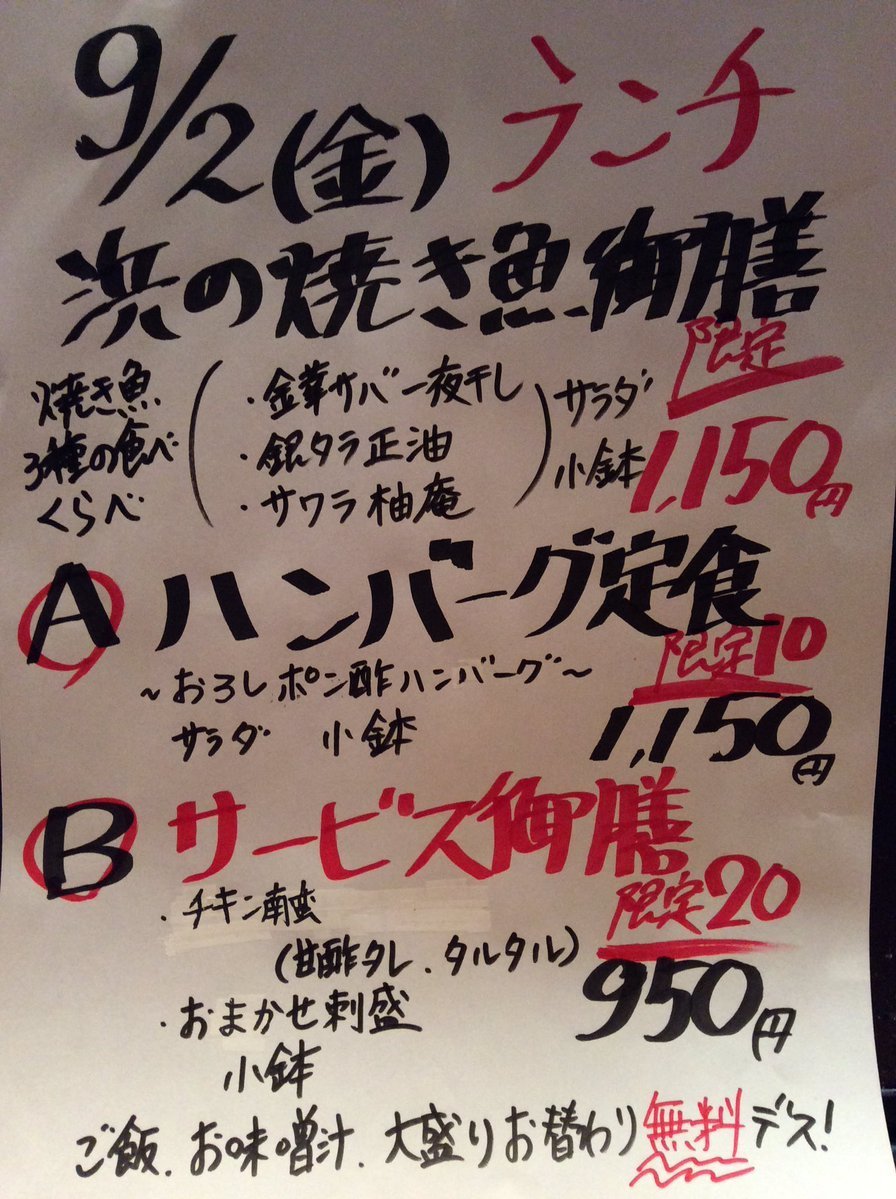 9/2(金) ランチ
浜の焼き魚御膳
限定
焼き魚
3種の食べ
くらべ
・金華サバ一夜干し
・銀タラ正油
・サワラ柚庵
サラダ
小鉢
1,150円
A ハンバーグ定食
限定10
~おろしポン酢ハンバーグ~
サラダ 小鉢
1,150円
B サービス御膳
限定20
・チキン南蛮
(甘酢タレ、タルタル)
・おまかせ刺盛
小鉢
950円
ご飯、お味噌汁、大盛りお替わり無料デス!